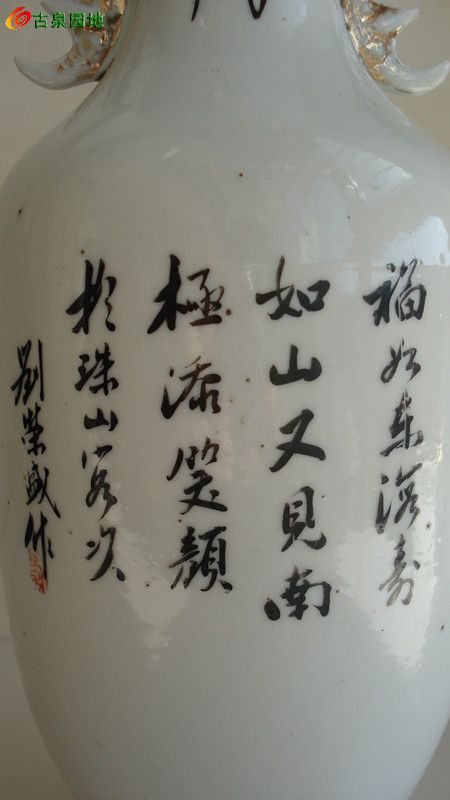 古泉园地
福如东海寿
如山又見南
極添笑顏
於珠山客次
劉榮盛作